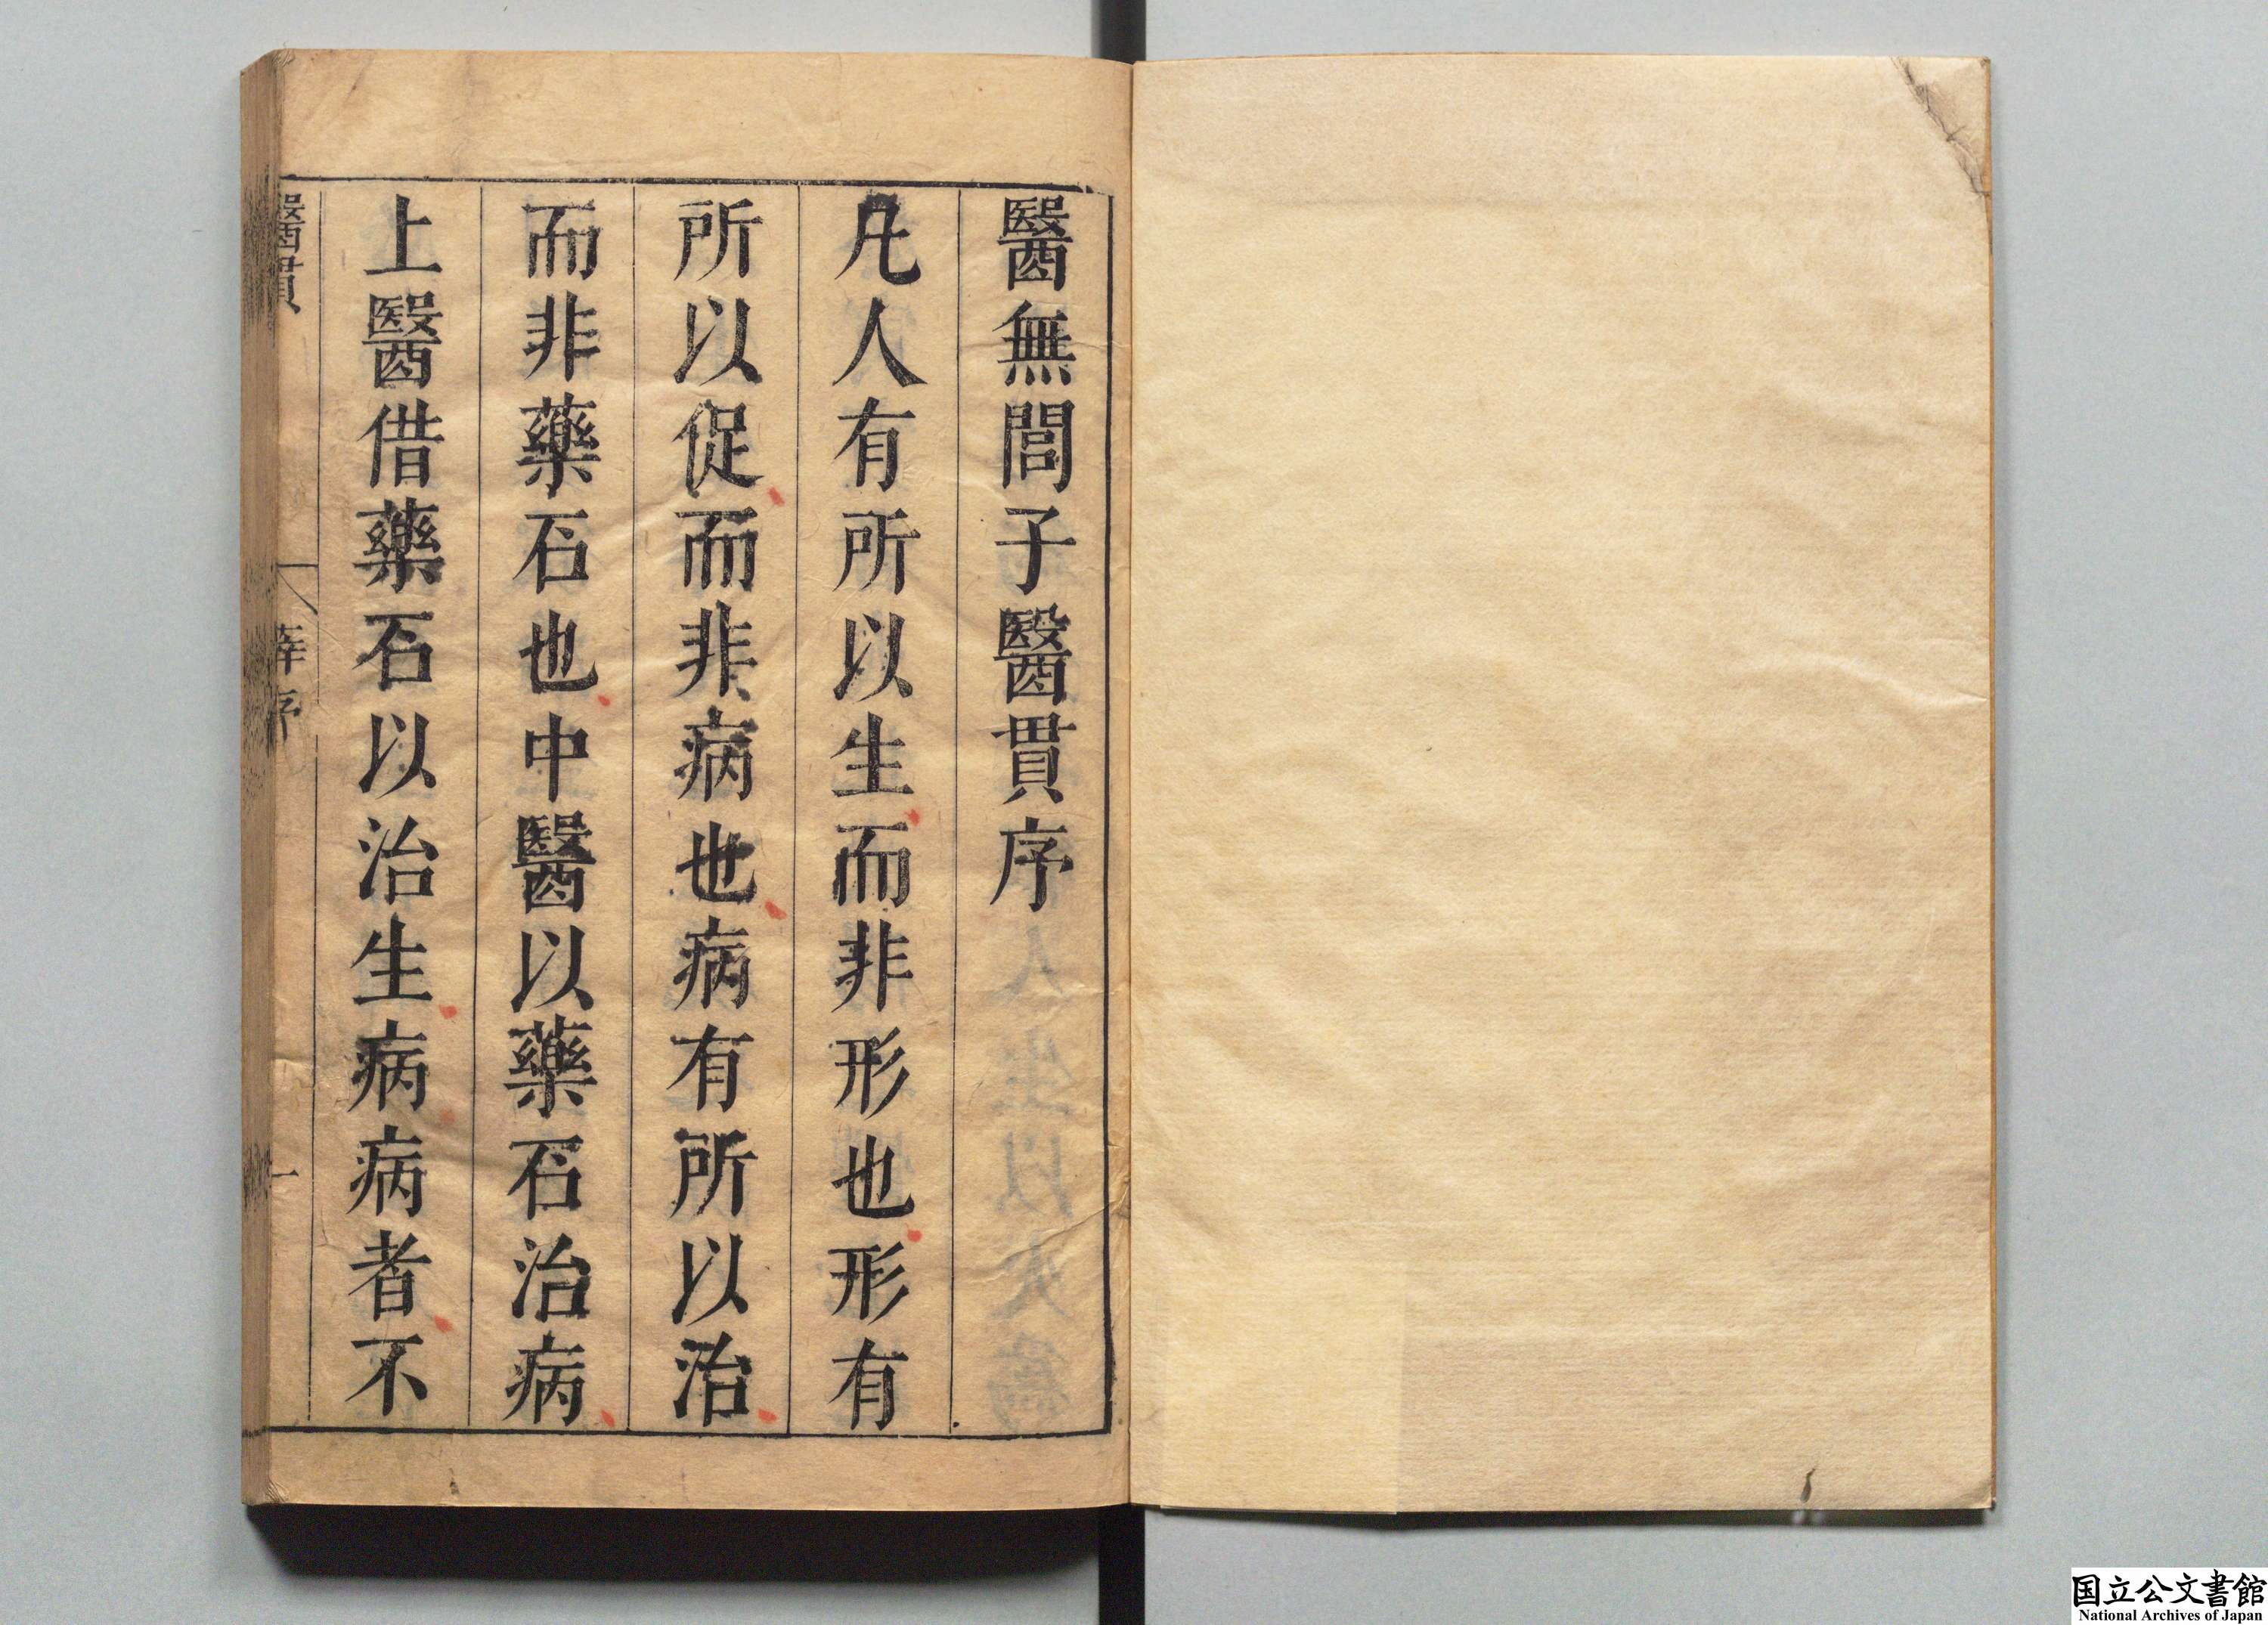 醫無閭子醫貫序
凡人有所以生而非形也形有
所以促而非病也病有所以治
而非藥石也中醫以藥石治病
上醫借藥石以治生病病者不
醫貫
薛序
一
国立公文書館
National Archives of Japan